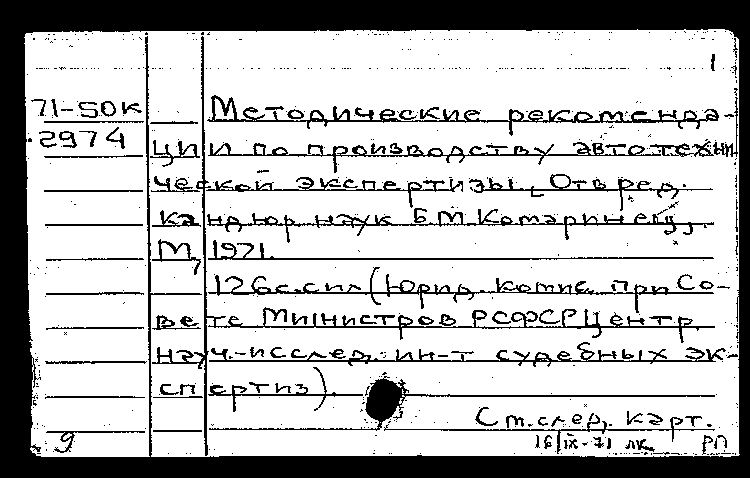 1
71-50к Методические рекоменда-
2974 ции по производству автотехни
ческой экспертизы. [Отв. ред.
канд. юр. наук Б.М. Комаринец].
М., 1971.
126 с. с ил. (Юрид. комис. при Со-
вете Министров РСФСР Центр.
науч.-исслед. ин-т судебных эк-
спертиз).
См. след. карт.
9 16/IX-71 лк РП